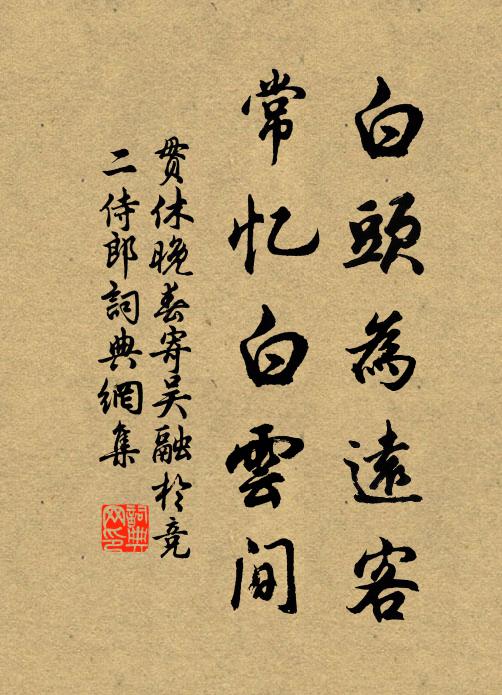 白頭為遠客
常忆白雲間
貫休晚春寄吴融於竞
二侍郎詞典網集
詞典网印